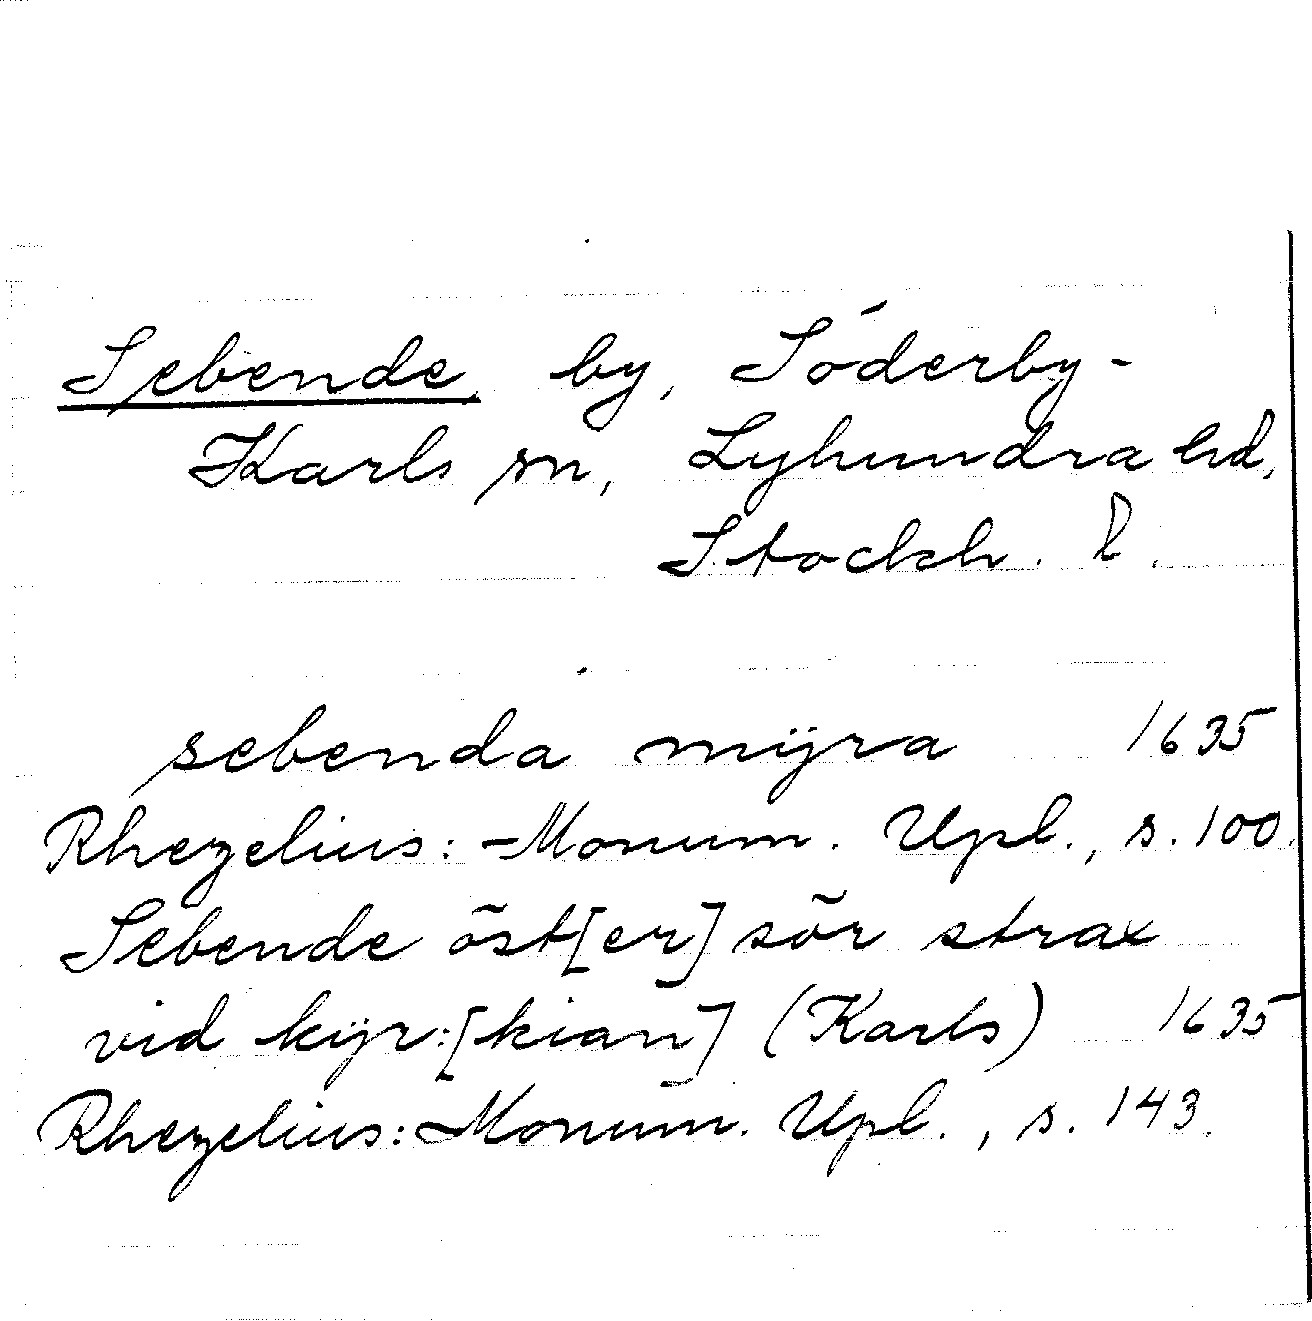 Sebende by, Söderby-
Karls sn, Lyhundra hd,
Stockh. l.
sebenda mÿra 1635
Rhezelius: Monum. Upl., s. 100.
Sebende öst[er] sör strax
vid kÿr:[kian] (Karls) 1635
Rhezelius: Monum. Upl., s. 143.